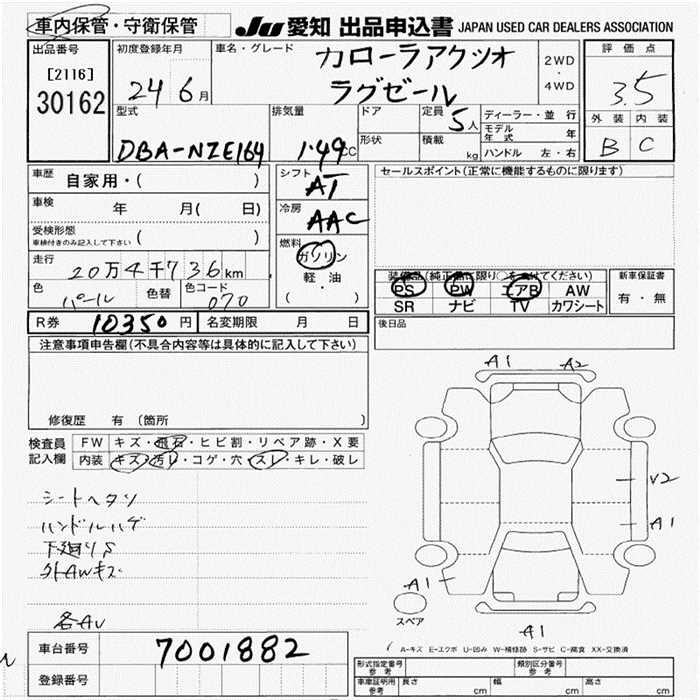 車内保管・守衛保管
JU 愛知 出品申込書 JAPAN USED CAR DEALERS ASSOCIATION
出品番号
[2116]
30162
初度登録年月
24 6月
車名・グレード
カローラアクシオ
ラグゼール
2WD
・
4WD
評価点
3.5
外装 内装
B C
型式
DBA-NZE164
排気量
1.49 CC
ドア
形状
定員
5人
積載
kg
ディーラー・並行
モデル年式 年
ハンドル 左・右
車歴
自家用・( )
車検
年 月( 日)
受検形態
車検付きのみ記入して下さい ( )
走行
20万4千736km
色
パール
色替
色コード
070
シフト
AT
冷房
AAC
燃料
ガソリン
軽・油
( ・ )
セールスポイント(正常に機能するものに限ります)
装備品(純正品に限り○を付けてください)
PS PW エアB AW
SR ナビ TV カワシート
新車保証書
有・無
後日品
R券 10350円
名変期限 月 日
注意事項申告欄(不具合内容等は具体的に記入して下さい)
修復歴 有 (箇所 )
検査員記入欄
FW キズ・飛石・ヒビ割・リペア跡・X要
内装 キズ・汚レ・コゲ・穴・スレ・キレ・破レ
シートヘタリ
ハンドルハゲ
下廻りS
外AWキズ
各AU
A1 A2
V2
A1
A1
スペア
A1
A-キズ E-エクボ U-凹み W-補修跡 S-サビ C-腐食 XX-交換済
車台番号
7001882
登録番号
形式指定番号 参考
類別区分番号 参考
車庫証明用 参考
長さ cm 幅 cm 高さ cm